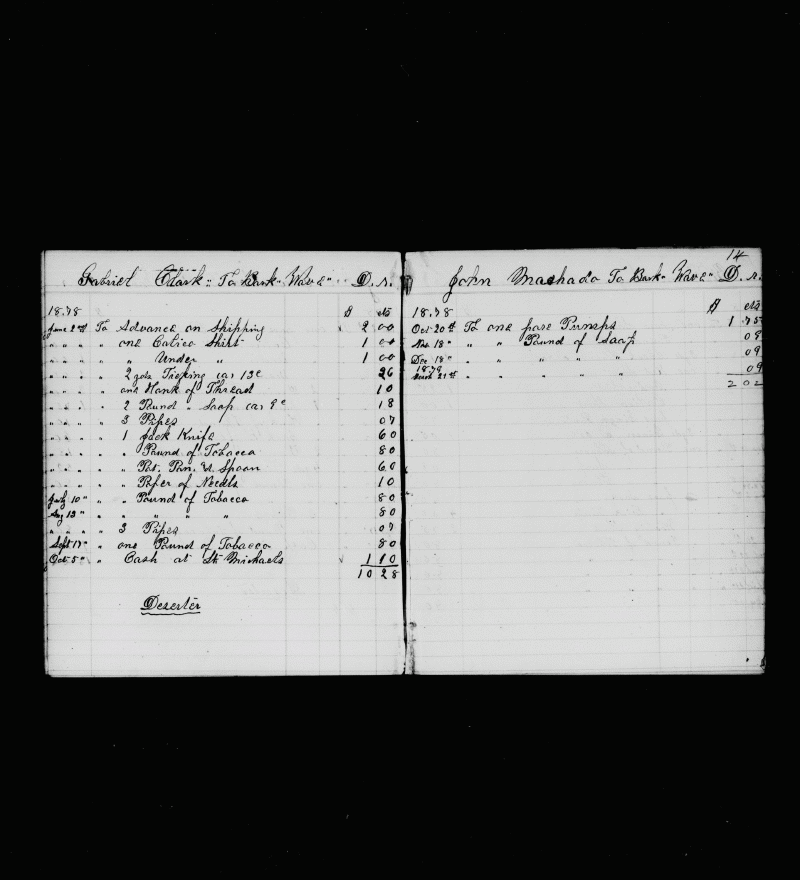 Gabriel Clark " To Bark " Wave " D. r.
18.78 $ cts
June 2nd To Advance on Shipping 2 00
" " " " one Calico Shirt 1 00
" " " " " Under " 1 00
" " " " 2 yds Ticking (as 13c 26
" " " " one Hank of Thread 10
" " " " 2 Pound " Soap (as 9c 18
" " " " 3 Pipes 07
" " " " 1 Jack Knife 60
" " " " " Pound of Tobacco 80
" " " " " Pot. Pan. & Spoon 60
" " " " " Paper of Needls 10
July 10 " " " Pound of Tobacco 80
Aug 13 " " " " " " 80
" " " " 3 Pipes 07
Sept 17 " " one Pound of Tobacco 80
Oct 5 " " Cash at St. Michaels 1 10
10 28
Deserter
14
John Machado To Bark " Wave " D. r.
18.78 $ cts
Oct 20th To one pare Pumps 1 75
Nov 18 " " " Pound of Soap 09
Dec 18 " " " " " " 09
18.79
March 21st " " " " " 09
2 02